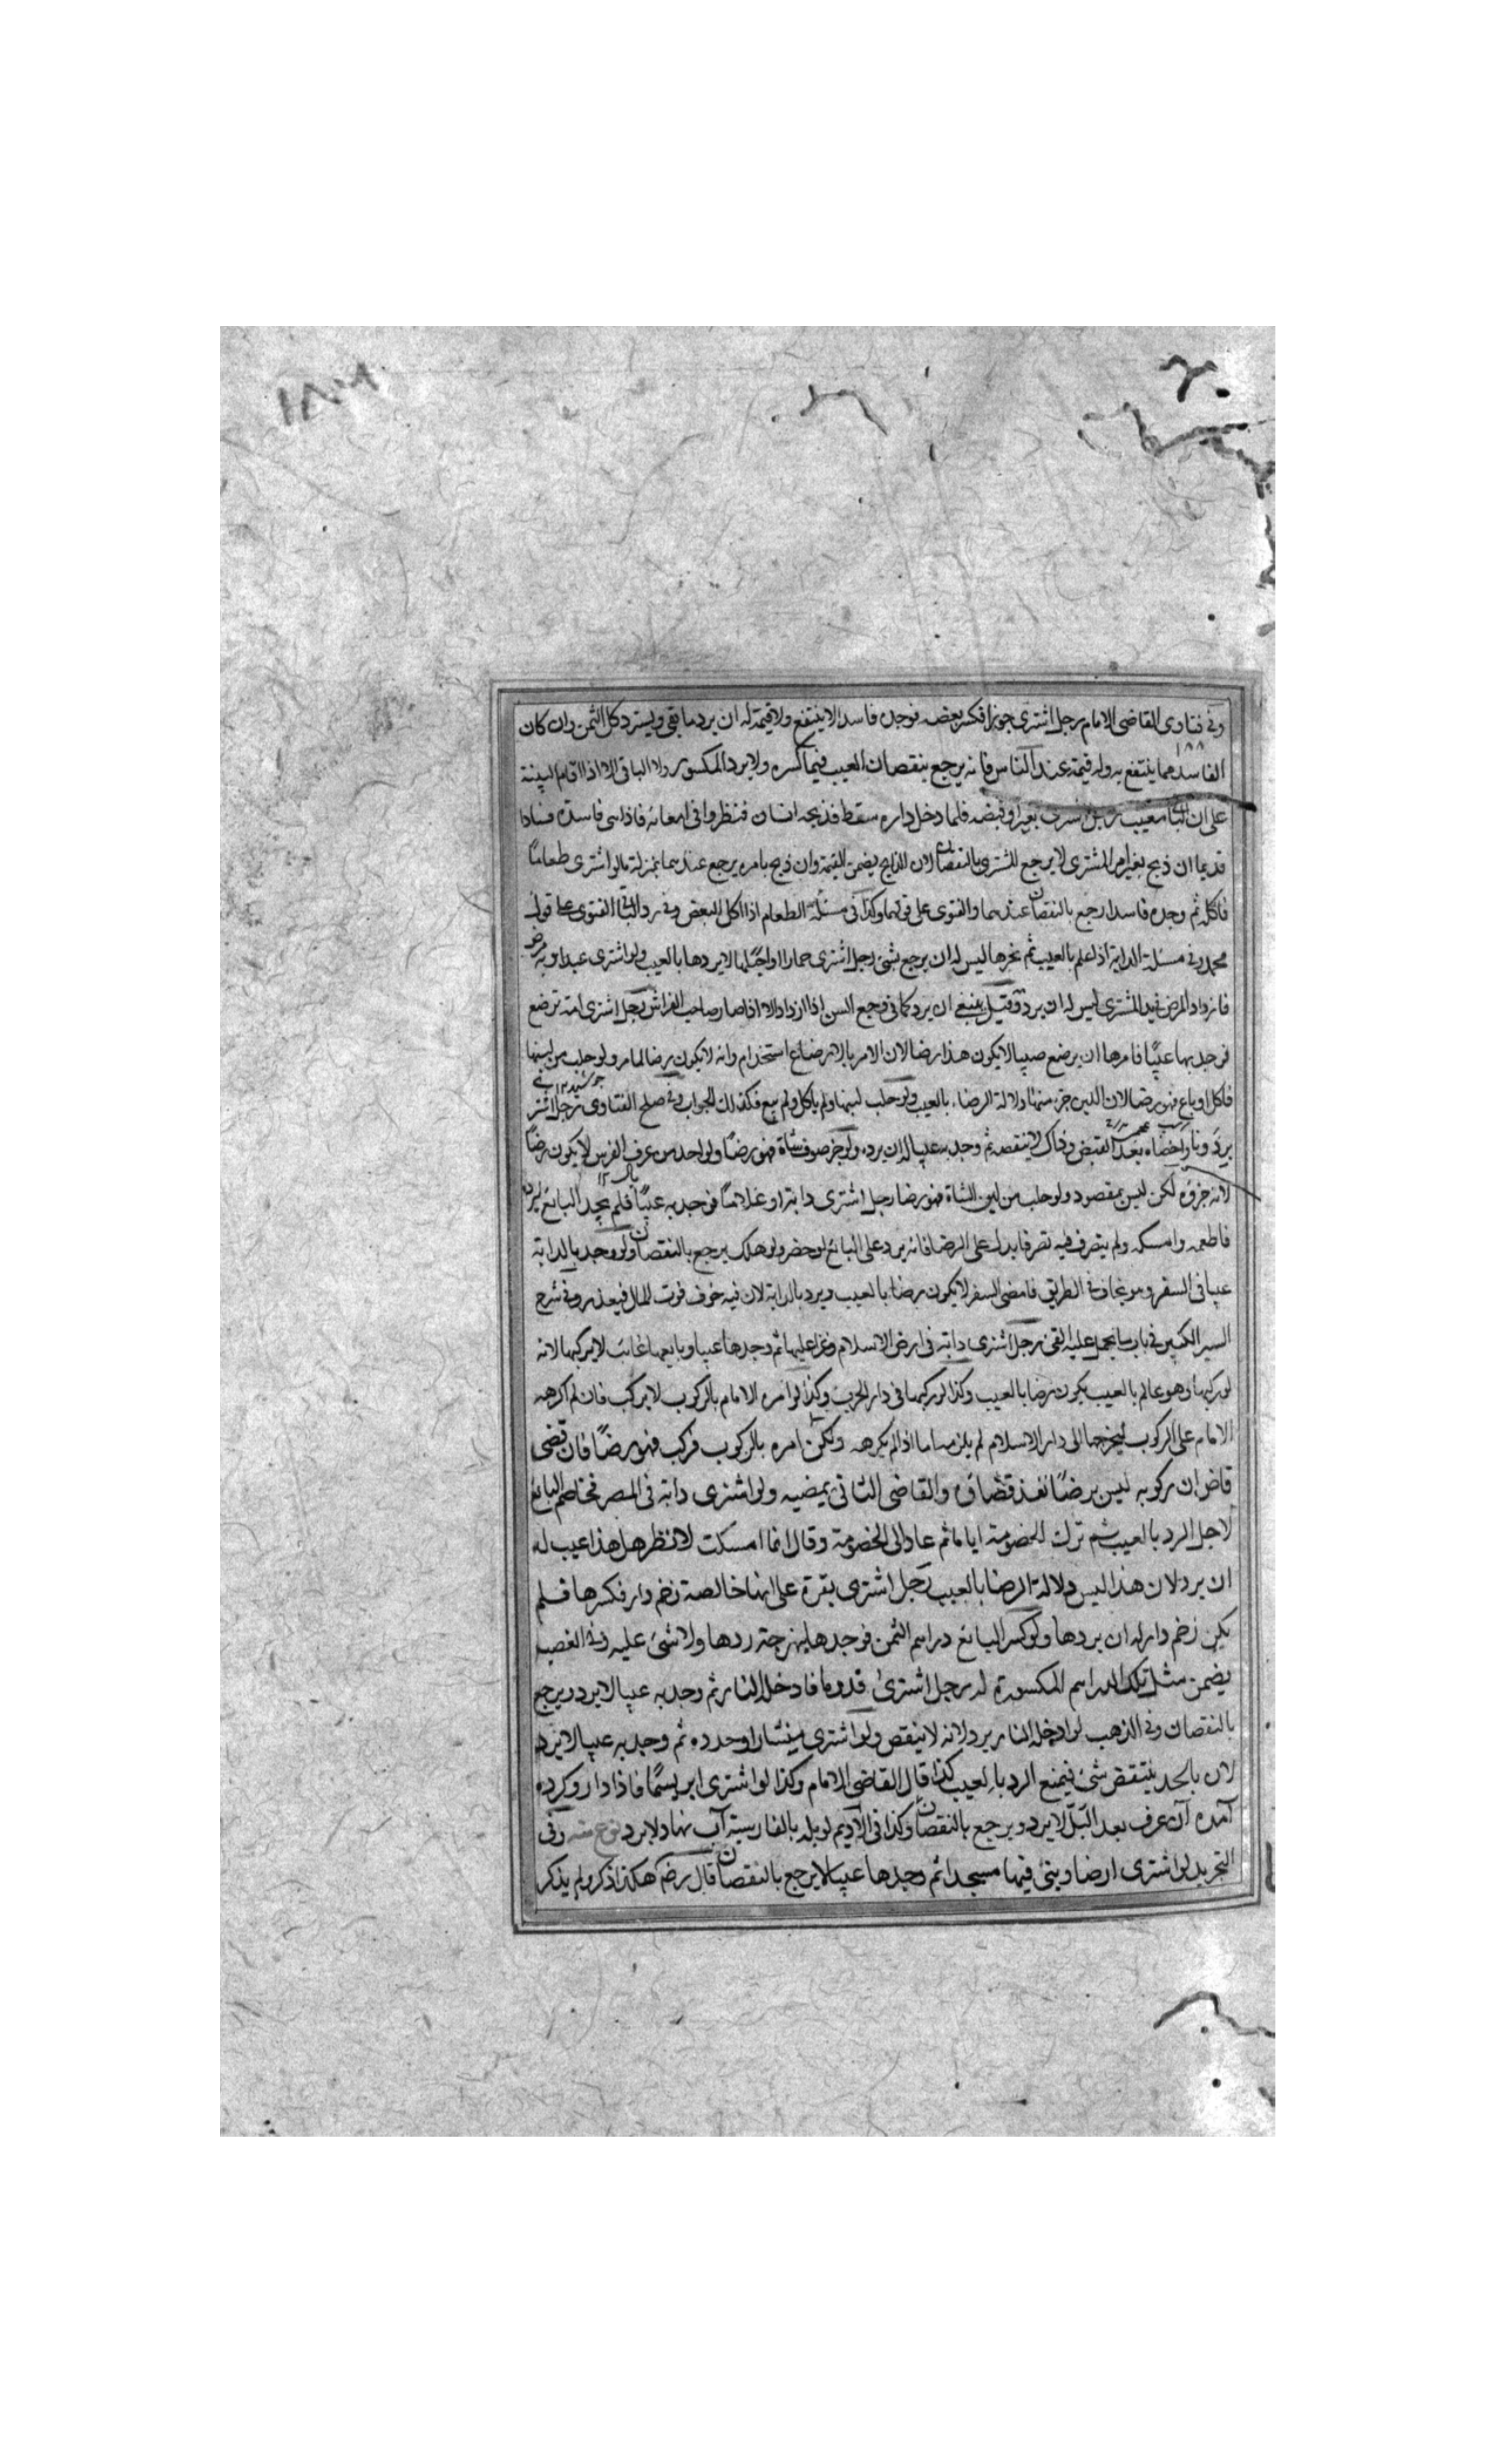 ١٨٧
وفي فتاوى القاضي الامام رجل اشترى جوزا فكسر بعضه فوجده فاسدا لا ينتفع ولا قيمة له ان يرد ما بقي ويسترد كل الثمن وان كان
١٨٨
الفاسد مما ينتفع به وله قيمة عند الناس فانه يرجع بنقصان العيب فيما كسره ولا يرد المكسور ولا الباقي الا اذا اقام البينة
على ان الباقي معيب رجل اشترى بعيرا وقبضه فلما دخل داره سقط فذبحه انسان فنظروا في امعائه فاذا هي فاسدة فسادا
قديما ان ذبح بغير امر المشتري لا يرجع المشتري بالنقصان لان الذابح يضمن القيمة وان ذبح بامره يرجع عندهما بمنزلة ما لو اشترى طعاما
فاكله ثم وجده فاسدا رجع بالنقصان عندهما والفتوى على قولهما وكذا في مسئلة الطعام اذا اكل البعض وفي رد الباقي الفتوى على قول
محمد وفي مسئلة الدابة اذا علم بالعيب ثم نحرها ليس له ان يرجع بشئ رجل اشترى حمارا لا يردها بالعيب ولو اشترى عبدا وبه مرض
فازداد المرض في يد المشتري ليس له ان يرد وقيل ينبغي ان يرد كما في وجع السن اذا ازداد الا اذا صار صاحب الفراش رجل اشترى امة ترضع
فوجد بها عيبا فامرها ان يرضع صبيا لا يكون هذا رضا لان الامر بالارضاع استخدام وانه لا يكون رضا لما مر ولو حلب من لبنها
فاكل او باع فهو رضا لان اللبن جزء منها دلالة الرضاء بالعيب ولو حلب لبنها ولم ياكل ولم يبع فكذلك الجواب وفي صلح الفتاوى رجل اشترى
برذونا واخصاه بعد القبض وذاك لا ينقصه ثم وجد به عيبا له ان يرد ولو جز صوف شاة فهو رضا ولو اخذ من عرف الفرس لا يكون رضا
لانه جزؤه لكن ليس بمقصود ولو حلب من لبن الشاة فهو رضا رجل اشترى دابة او غلاما فوجد به عيبا فلم يجد البائع ليرده
فاطعمه وامسكه ولم يتصرف فيه تصرفا يدل على الرضا فانه يرد على البائع لو حضر ولو هلك يرجع بالنقصان ولو وجد بالدابة
عيبا في السفر وهو يخاف في الطريق فامضى السفر لا يكون رضا بالعيب ويرد بالدابة لان فيه خوف فوت المال فيعذر وفي شرح
السير الكبير في باب ما يحمل عليه الفئ رجل اشترى دابة في ارض الاسلام وغزا عليها ثم وجدها عيبا وبايعها غائب لا يركبها لانه
لو ركبها وهو عالم بالعيب يكون رضا بالعيب وكذا لو ركبها في دار الحرب وكذا لو امره الامام بالركوب لا يركب فان لم اكرهه
الامام على الركوب ليخرجها الى دار الاسلام لم يلزمه اما اذا لم يكرهه ولكن امره بالركوب فركب فهو رضا فان قضى
قاض ان ركوبه ليس برضا نفذ قضاؤه والقاضي الثاني يمضيه ولو اشترى دابة في المصر فخاصم البائع
لاجل الرد بالعيب ثم ترك الخصومة اياما ثم عاد الى الخصومة وقال انما امسكت لانظر هل هذا عيب له
ان يرد لان هذا ليس دلالة الرضا بالعيب رجل اشترى بقرة على انها خالصة زخم دار فكسرها فلم
يكن زخم دار له ان يردها ولو كسر البائع دراهم الثمن فوجدها نبهرجة ردها ولا شئ عليه وفي الغصب
يضمن مثل تلك الدراهم المكسورة له رجل اشترى قدوما فادخل النار ثم وجد به عيبا لا يرد ويرجع
بالنقصان وفي الذهب لو ادخله النار يرد لانه لا ينقص ولو اشترى منشارا وحدده ثم وجد به عيبا لا يرد
لان بالحد ينتقض شئ فيمنع الرد بالعيب كذا قال القاضي الامام وكذا لو اشترى ابريسما فاذا دارو كرده
آمده آن عرف بعد البل لا يرد ويرجع بالنقصان وكذا في الاديم لو بله بالفارسية آب نهاد لا يرد نوع منه وفي
التجريد لو اشترى ارضا وبنى فيها مسجدا ثم وجدها عيبا لا يرجع بالنقصان قال رضه هكذا ذكر ولم يذكر